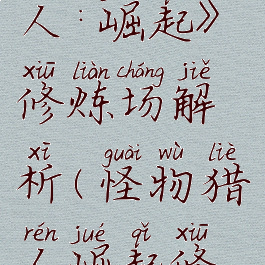 人：崛起》
xiū liàn chǎng jiě
修炼场解
xī guài wù liè
析(怪物猎
rén jué qǐ xiū
人崛起修